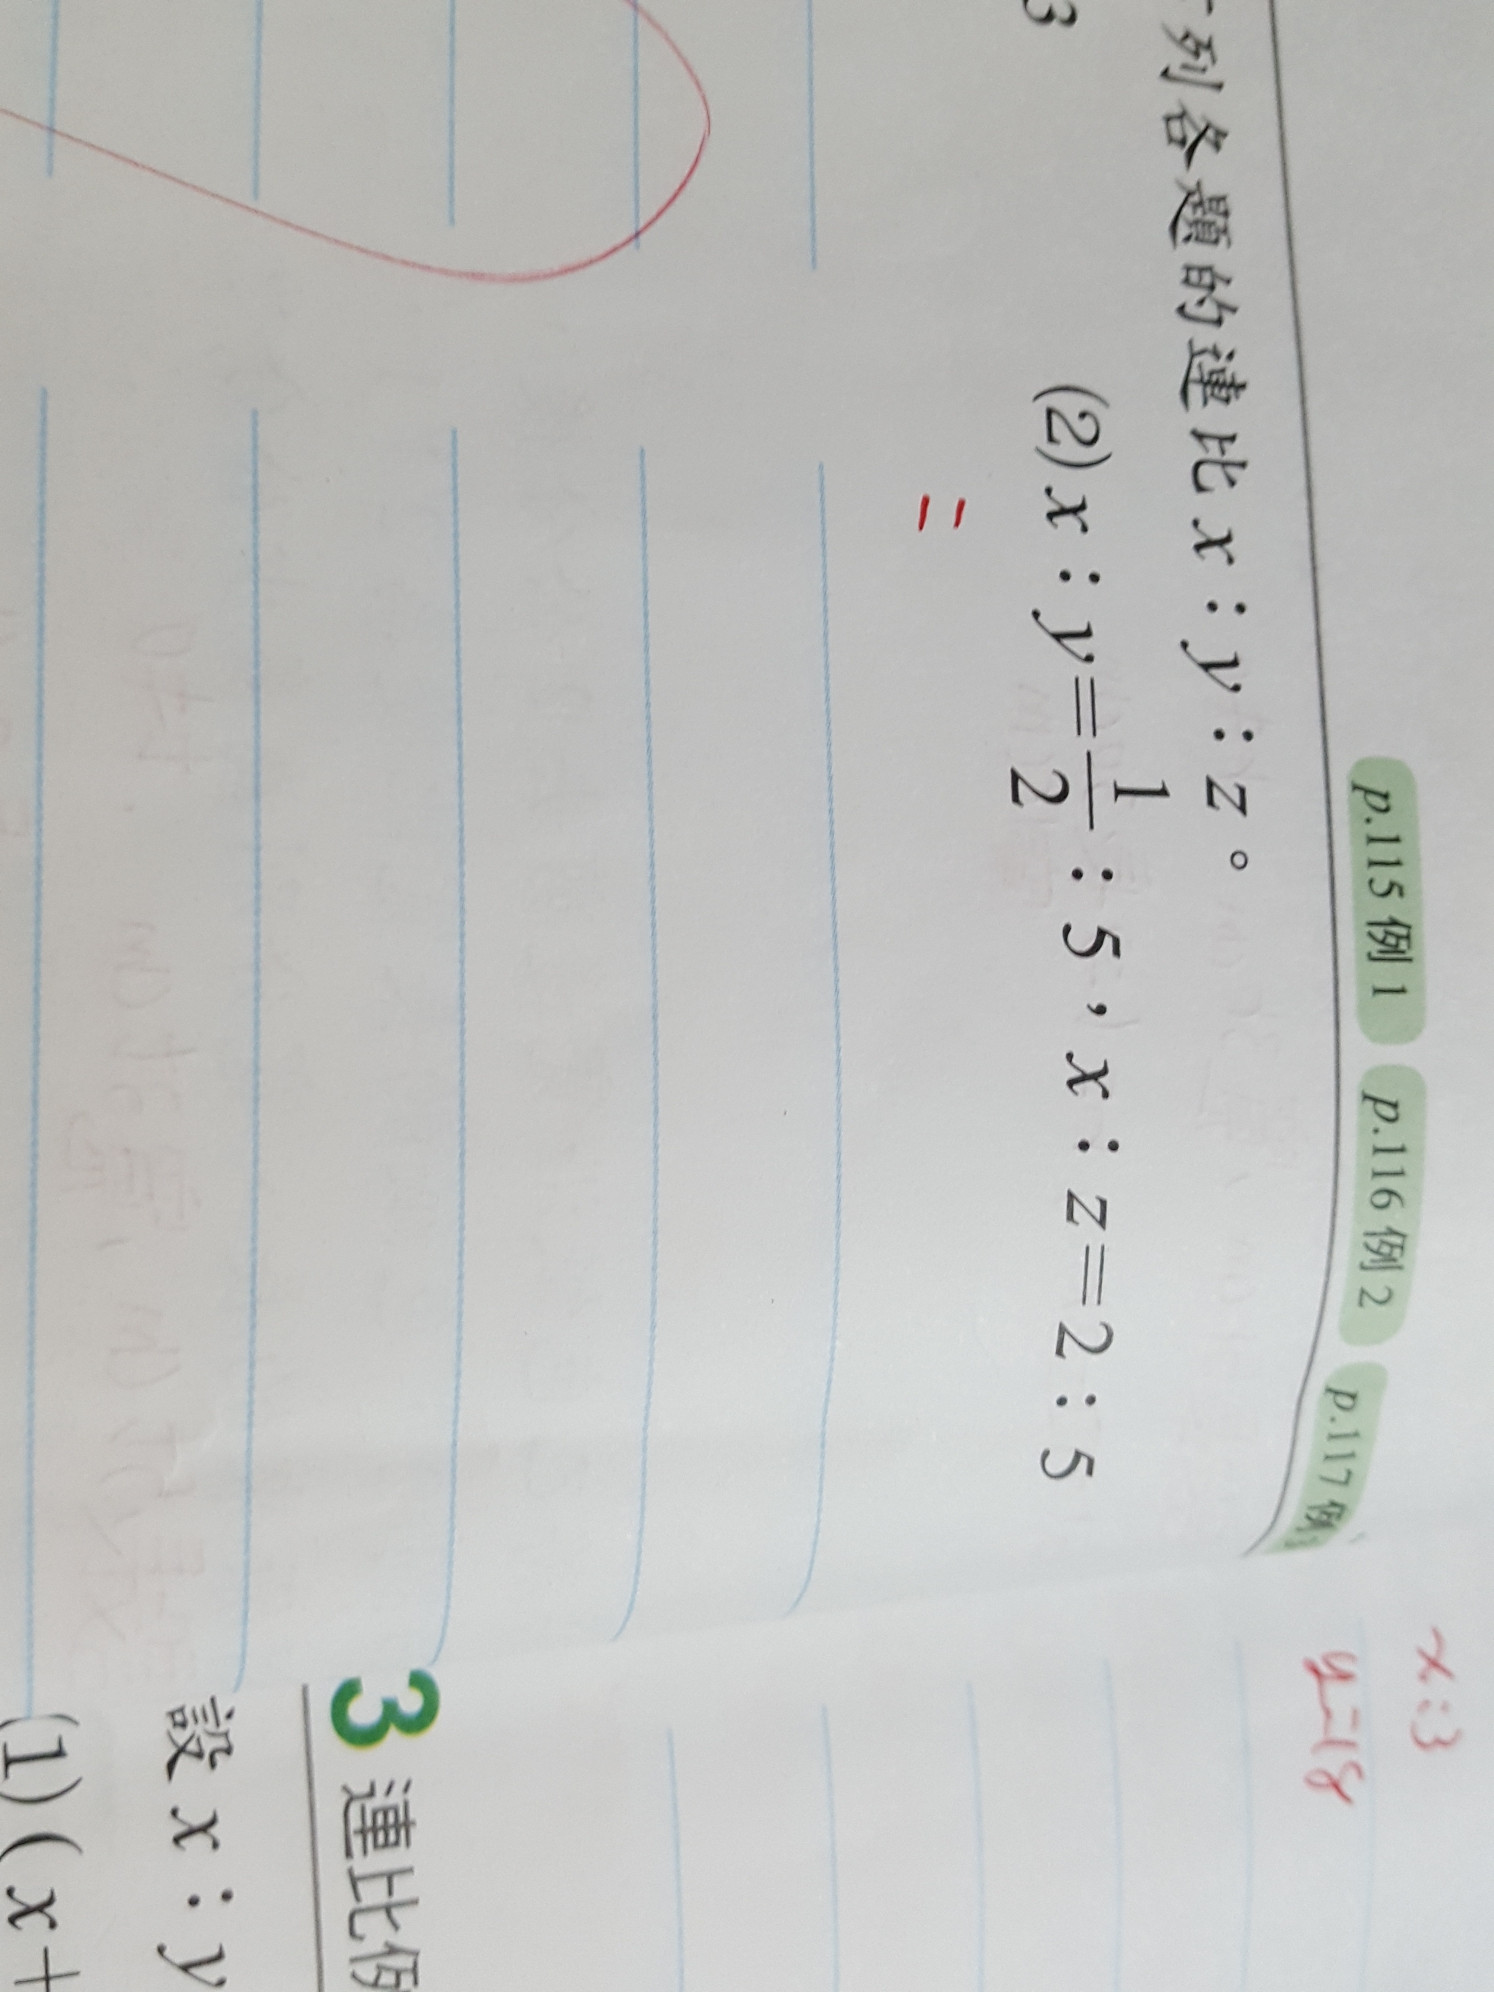 p.115 例 1 p.116 例 2 p.117 例
列各題的連比 x：y：z。
3
(2) x：y=1/2：5，x：z=2：5
=
x:3
y=18
3 連比例
設 x：y
(1)(x+